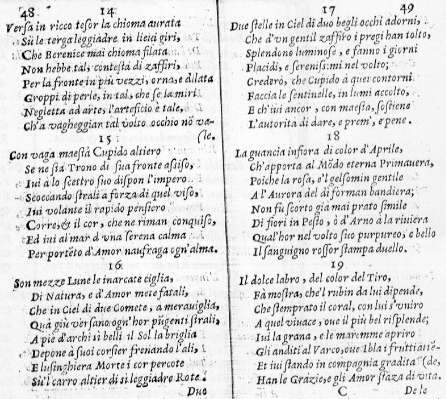 48 14
Versa in ricco tesor la chioma aurata
Sù le terga leggiadre in lieui giri,
Che Berenice mai chioma filata
Non hebbe tal, contesta di zaffiri,
Per la fronte in più vezzi, orna, e dilata
Groppi di perle, in tal, che se la miri
Negletta ad arte, l'arteficio è tale,
Ch'a vagheggian tal volto occhio nõ va-
(le.
15
Con vaga maestà Cupido altiero
Se ne stà Trono di sua fronte assiso,
Iui a lo scettro suo dispon l'impero
Scoccando strali a forza di quel viso,
Iui volante il rapido pensiero
Corre, & il cor, che ne riman conquiso,
Ed iui al mar d'vna serena calma
Per portẽto d'Amor naufraga ogn'alma.
16
Son mezze Lune le inarcate ciglia,
Di Natura, e d'Amor mete fatali,
Che in Ciel di due Comete, a merauiglia,
Quà giù versano ogn'hor pũgenti strali,
A piè d'archi sì belli il Sol la briglia
Depone à suoi corsier frenando l'ali,
E lusinghiera Morte i cor percote
Su'l carro altier di sì leggiadre Rote.
Due
17 49
Due stelle in Ciel di duo begli occhi adorni,
Che d'vn gentil zaffiro i pregi han tolto,
Splendono luminose, e fanno i giorni
Placidi, e serenissimi nel volto;
Crederò, che Cupido à quei contorni
Faccia le sentinelle, in lumi accolto,
E ch'iui ancor, con maestà, sostiene
L'autorità di dare, e premi, e pene.
18
La guancia infiora di color d'Aprile,
Ch'apporta al Mõdo eterna Primauera,
Poiche la rosa, e'l gelsomin gentile
A l'Aurora del dì forman bandiera;
Non fù scorto già mai prato simile
Di fiori in Pesto, ò d'Arno à la riuiera
Qual'hor nel volto suo purpureo, e bello
Il sanguigno rossor stampa duello.
19
Il dolce labro, del color del Tiro,
Fà mostra, che'l rubin da lui dipende,
Che stemprato il coral, con lui s'vniro
A quel viuace, oue il più bel risplende;
Iui la grana, e le maremme apriro
Gli anditi al Varco, oue Ibla i frutti stẽ-
Et iui stando in compagnia gradita (de,
Han le Grazie, e gli Amor stãza di vita.
C De le